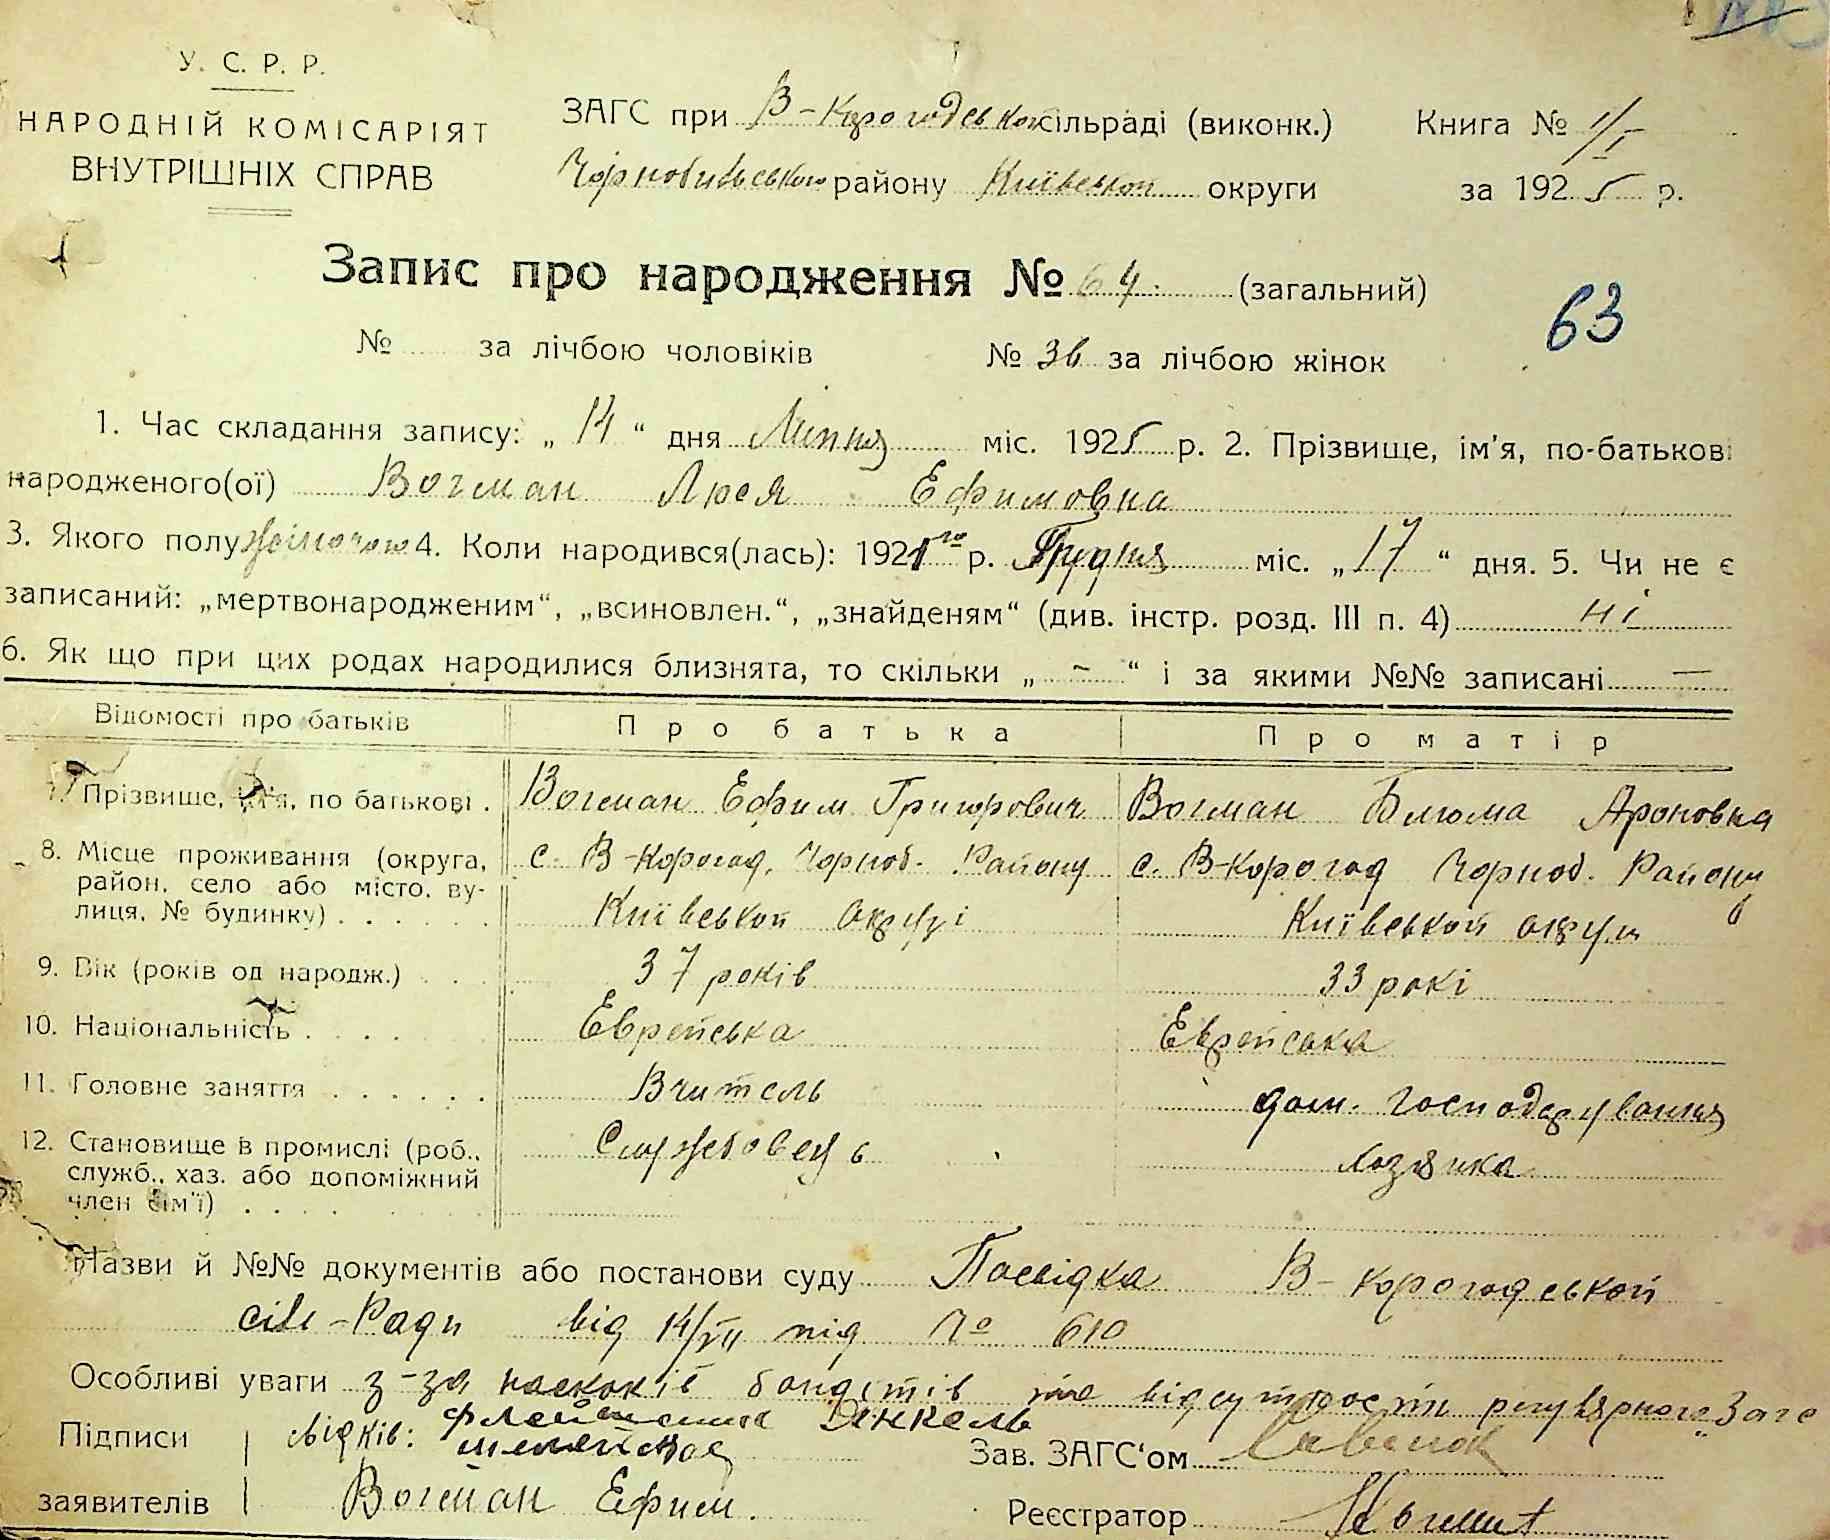 У. С. Р. Р.
НАРОДНІЙ КОМІСАРІЯТ
ВНУТРІШНІХ СПРАВ
ЗАГС при В-Корогодської сільраді (виконк.) Книга № 1/I
Чорнобильського району Київської округи за 1925 р.
Запис про народження № 64. (загальний)
63
№ за лічбою чоловіків № 36 за лічбою жінок
1. Час складання запису: „ 14 “ дня Липня міс. 1925 р. 2. Прізвище, ім'я, по-батькові
народженого(ої) Вогман Люся Ефимовна
3. Якого полу жіночого 4. Коли народився(лась): 1921го р. Грудня міс. „ 17 “ дня. 5. Чи не є
записаний: „мертвонародженим“, „всиновлен.“, „знайденям“ (див. інстр. розд. III п. 4) ні
6. Як що при цих родах народилися близнята, то скільки „ ~ “ і за якими №№ записані —
Відомості про батьків Про батька Про матір
7. Прізвище, ім'я, по батькові . Вогман Ефим Григорович Вогман Блюма Ароновна
8. Місце проживання (округа, район, село або місто, вулиця, № будинку) . с. В-Корогод, Чорноб. Району с. В-Корогод Чорноб. Району
Київської округі Київської округи
9. Вік (років од народж.) 37 років 33 рокі
10. Національність Еврейська Еврейська
11. Головне заняття Вчитель дом. господарування
12. Становище в промислі (роб., служб., хаз. або допоміжний член сім'ї) Службовець хозяйка
Назви й №№ документів або постанови суду Посвідка В-Корогодської
сіль-Ради від 14/VII під № 610
Особливі уваги з-за наскоків бандітів та відсутности регулярного Загс
Підписи свідків: Зав. ЗАГС'ом
заявителів Вогман Ефим. Реєстратор